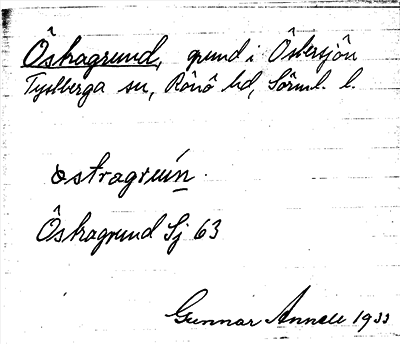 Östragrund, grund i Östersjön
Tystberga sn, Rönö hd, Sörml. l.
östragrún.
Östragrund Sj 63
Gunnar Annell 1933